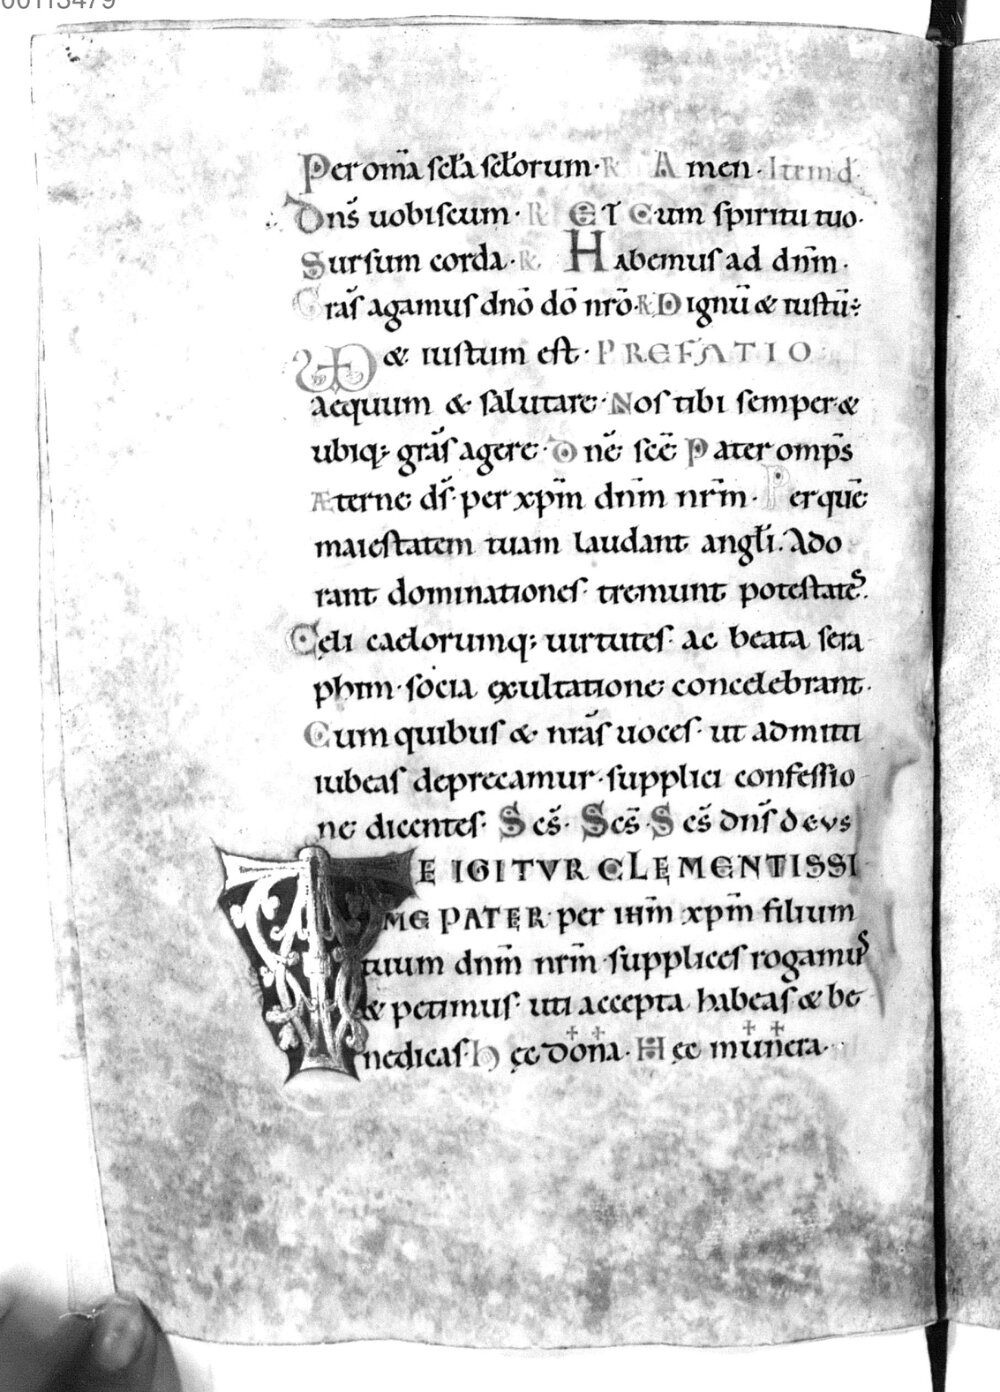 00113479
Per om̄a scl̄a scl̄orum · R Amen · Item d
Dn̄s uobiscum · R ET Cum spiritu tuo ·
Sursum corda · R. Habemus ad dn̄m ·
Grās agamus dn̄o dō nr̄o · R Dignū & iustū:
VD & iustum est · PREFATIO
aequum & salutare · Nos tibi semper &
ubiq; grās agere · Dn̄e sc̄e Pater omp̄s
Æterne d̄s · per xp̄m dn̄m nr̄m · Per quē
maiestatem tuam laudant angl̄i. Ado
rant dominationes · tremunt potestates.
Cęli caelorumq; uirtutes ac beata sera
phim · socia exultatione concelebrant ·
Cum quibus & nr̄as uoces · ut admitti
iubeas deprecamur · supplici confessio
ne dicentes · Sc̄s · Sc̄s · Sc̄s dn̄s deus
TE IGITVR CLEMENTISSI
ME PATER · per ih̄m xp̄m filium
tuum dn̄m nr̄m · supplices rogamus
& petimus · uti accepta habeas & be
nedicas · Hęc do✝na✝ · Hęc mu✝ne✝ra ·